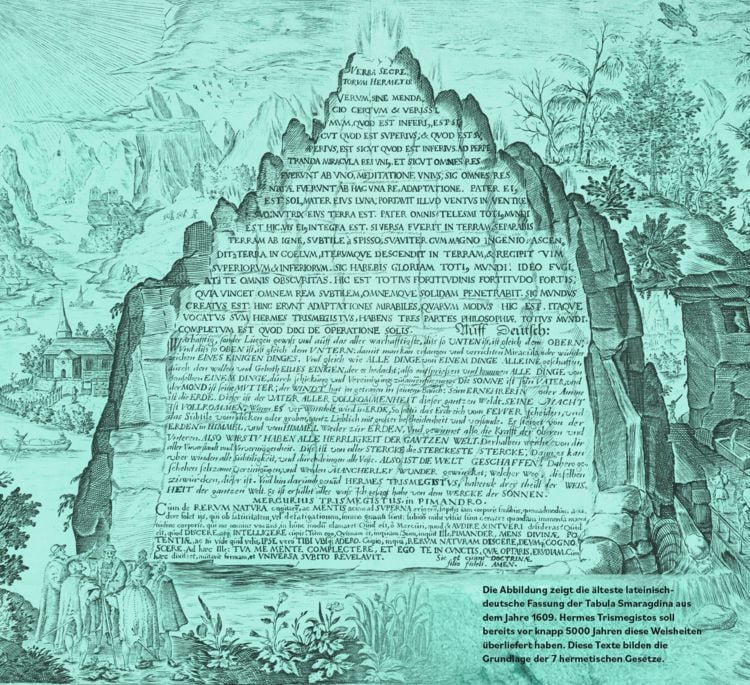 VERBA SECRE-
TORUM HERMETIS.
VERUM, SINE MENDA,
CIO CERTUM & VERISSI,
MUM, QUOD EST INFERI,, EST SI,
CUT QUOD EST SUPERIUS, & QUOD EST SU,
PERIUS, EST SICUT QUOD EST INFERIUS, AD PERPE,
TRANDA MIRACULA REI UNI,, ET SICUT OMNES RES
FUERUNT AB UNO, MEDITATIONE UNIUS, SIC OMNES RES
NATÆ FUERUNT AB HAC UNA RE, ADAPTATIONE. PATER EI,
EST SOL, MATER EIUS LUNA; PORTAVIT ILLUD VENTUS IN VENTRE
SUO; NUTRIX EIUS TERRA EST. PATER OMNIS TELESMI TOTI, MUNDI
EST HIC. VIS EI, INTEGRA EST. SI VERSA FUERIT IN TERRAM, SEPARABIS
TERRAM AB IGNE, SUBTILE à SPISSO, SUAVITER CUM MAGNO INGENIO. ASCEN,
DIT à TERRA IN COELUM, ITERUMQUE DESCENDIT IN TERRAM, & RECIPIT VIM
SUPERIORUM & INFERIORUM. SIC HABEBIS GLORIAM TOTI, MUNDI. IDEO FUGI,
AT à TE OMNIS OBSCURITAS. HIC EST TOTIUS FORTITUDINIS FORTITUDO FORTIS,
QUIA VINCET OMNEM REM SUBTILEM, OMNEMQUE SOLIDAM PENETRABIT. SIC MUNDUS
CREATUS EST. HINC ERUNT ADAPTATIONES MIRABILES, QUARUM MODUS HIC EST. ITAQUE
VOCATUS SUM HERMES TRISMEGISTUS, HABENS TRES PARTES PHILOSOPHIÆ TOTIUS MUNDI.
COMPLETUM EST QUOD DIXI DE OPERATIONE SOLIS. Auff Deutsch:
Warhafftig, sonder Luegen gewiß und auff das aller warhafftigste, diß so UNTEN ist, ist gleich dem OBERN:
Und diß so OBEN ist, ist gleich dem UNTERN: damit man kan erlangen und verrichten Miracula oder wunder
zeichen EINES EINIGEN DINGES. Und gleich wie ALLE DINGE von EINEM DINGE ALLEINE geschaffen,
durch den willen und Geboth EINES EINIGEN, der es bedacht; also entsprießen und kommen ALLE DINGE von
demselben EINEM DINGE, durch schickung und Vereinigung Die SONNE ist sein VATER, und
der MOND ist seine MUTTER; der WINDT hat in getragen in seinem Bauch; Sein ERNEHRERIN oder Amme
ist die ERDE. Dieser ist der VATER ALLER VOLLKOMMENHEIT dieser gantzen Welt. SEINE MACHT
IST VOLLKOMMEN, Wann ES verwandelt wird in ERDE, so soltu das Erdreich vom FEWER scheiden, und
das Subtile vom dicken oder groben, gantz Lieblich mit grosser bescheidenheit und verstande. Es steiget von der
ERDEN in HIMMEL, und vom HIMMEL Wieder zur ERDEN, Und gewinnet also die Krafft der obern und
Unteren. ALSO WIRSTU HABEN ALLE HERRLIGKEIT DER GANTZEN WELT. Derhalben weiche von dir
aller Unverstandt und Unvermögenheit. Diß ist von aller STERCKE die STERCKESTE STERCKE, Dann es kan
uber winden alle Subtiligkeit, und durchdringen all Veste. ALSO IST DIE WELT GESCHAFFEN. Dahero ge-
schehen seltzame Vereinigungen, und werden MANCHERLEY WUNDER gewürcket, Welcher Weg, dieselben
zu würcken, dieser ist. Und bin darumb genandt HERMES TRISMEGISTUS, habende drey theill der WEIS,
HEIT der gantzen welt. Es ist erfüllet alles was ich gesagt habe von dem WERCKE der SONNEN.
MERCURIUS TRISMEGISTUS in PIMANDRO.
Cum de RERUM NATURA cogitarem, ac MENTIS aciem ad SUPERNA erigerem, sopitis iam corporis sensibus, quemadmodum acci,
dere solet iis, qui ob saturitatem, vel defatigationem, somno gravati sunt: subito mihi visus sum cernere quendam immensâ magni
tudine corporis, qui me nomine vocans, in hunc modum clamaret. Quid est, ò Mercuri, quod & AUDIRE & INTUERI desideras? Quid
est, quod DISCERE, atq; INTELLIGERE cupis? Tum ego, Quisnam es, inquam? Sum, inquit ille, PIMANDER, MENS DIVINÆ PO,
TENTIÆ, ac tu vide quid velis, IPSE vero TIBI UBIQ; ADERO. Cupio, inquā, RERUM NATURAM DISCERE, DEUMQ; COGNO,
SCERE. Ad hæc ille: TUA ME MENTE COMPLECTERE, ET EGO TE IN CUNCTIS, QUÆ OPTARIS, ERUDIAM. Cum
hæc dixisset, mutavit formam, et UNIVERSA SUBITO REVELAVIT.
DOCTRINÆ,
filio fideli. AMEN.
Die Abbildung zeigt die älteste lateinisch-
deutsche Fassung der Tabula Smaragdina aus
dem Jahre 1609. Hermes Trismegistos soll
bereits vor knapp 5000 Jahren diese Weisheiten
überliefert haben. Diese Texte bilden die
Grundlage der 7 hermetischen Gesetze.